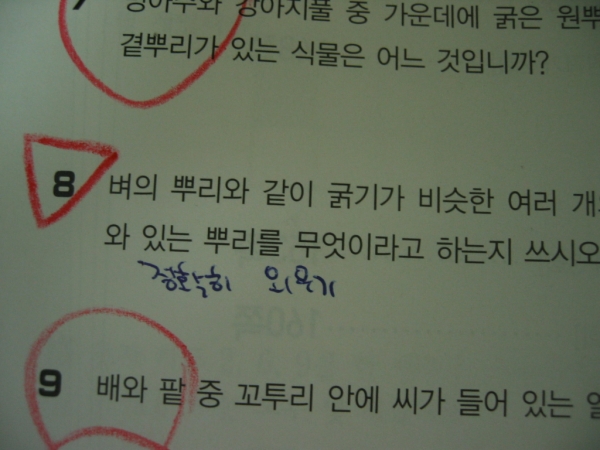 강아지풀 중 가운데에 굵은 원뿌
곁뿌리가 있는 식물은 어느 것입니까?
8 벼의 뿌리와 같이 굵기가 비슷한 여러 개
와 있는 뿌리를 무엇이라고 하는지 쓰시오
정확히 외우기
9 배와 팥 중 꼬투리 안에 씨가 들어 있는 열